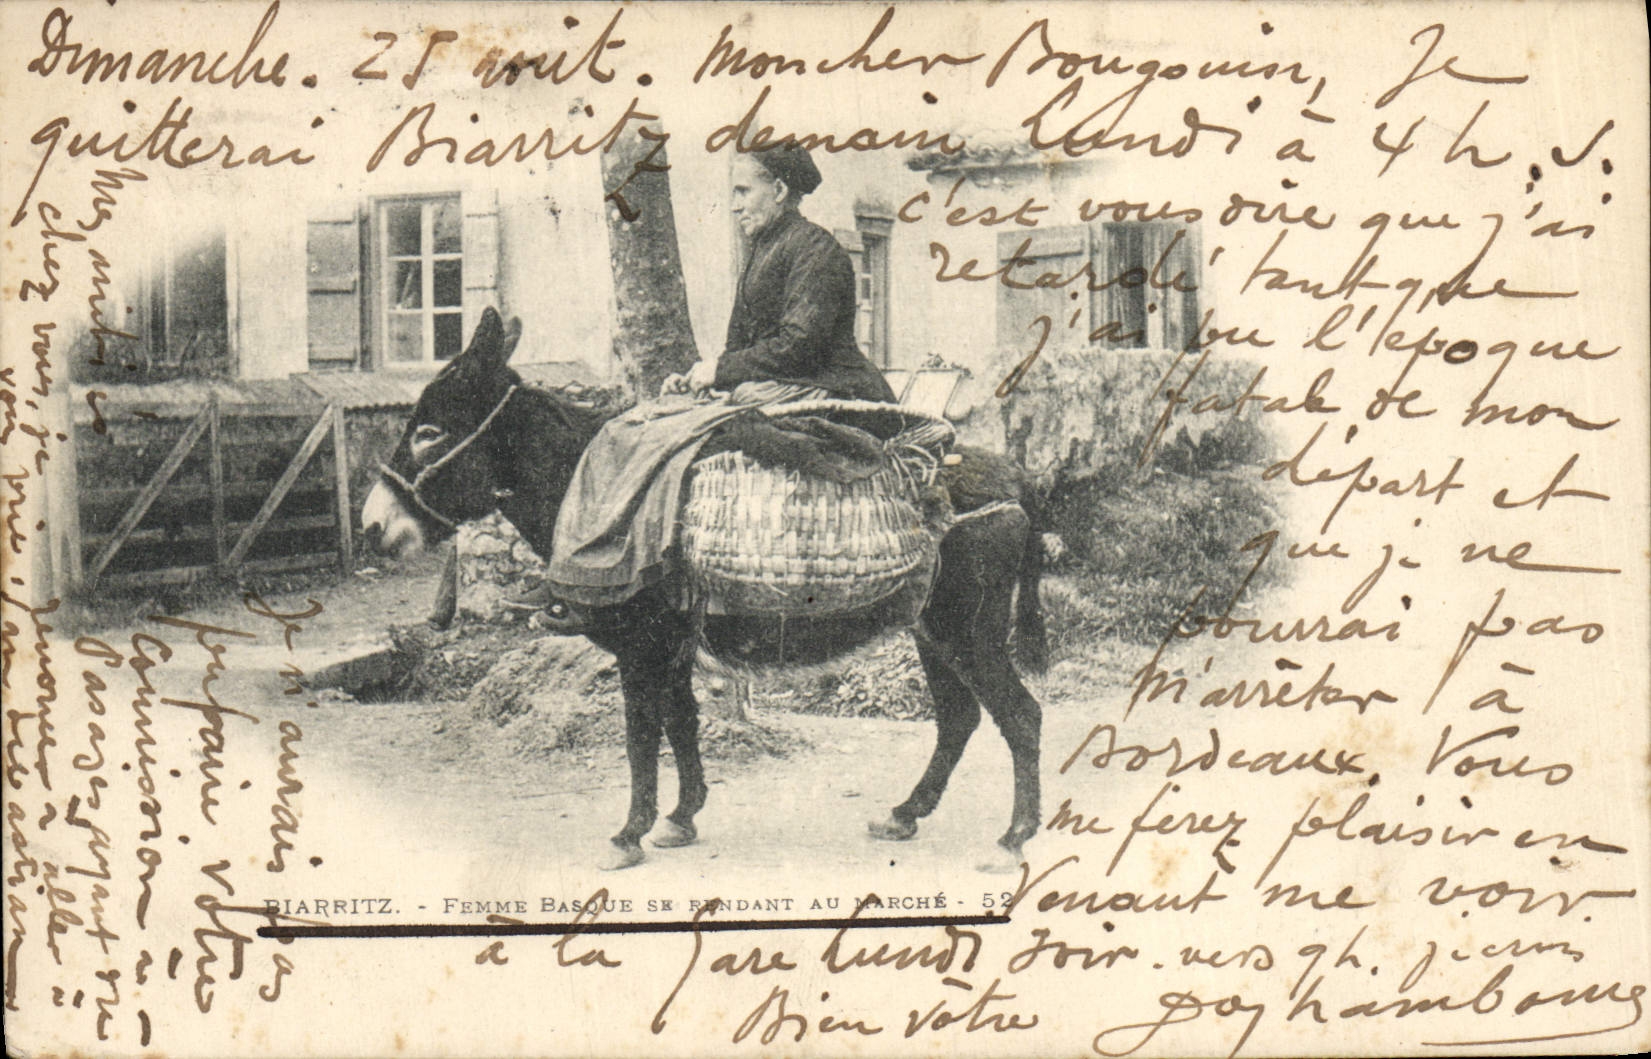 Dimanche. 25 août. Mon cher Bougouin, Je
quitterai Biarritz demain lundi à 4 h. s.
c'est vous dire que j'ai
retardé tant que
j'ai pu l'époque
fatale de mon
départ et
que je ne
pourrai pas
m'arrêter à
Bordeaux. Vous
me ferez plaisir en
venant me voir
à la gare lundi soir. vers 9h. je crois
Bien vôtre
BIARRITZ. - FEMME BASQUE SE RENDANT AU MARCHÉ - 52
Je n'aurais pas
pu faire votre
commission à
Pasages ayant dû
renoncer à aller à
chez vous, je
vous prie,